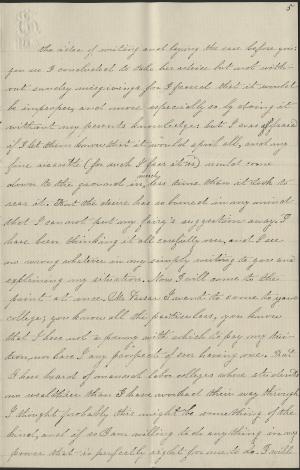 5
the idea of writing and laying the case before you
you see I concluded to take her advice but not with-
out sundry misgivings for I feared that it would
be improper, and more especially so by doing it
without my parents knowledge; but I was afraid
if I let them know this it would spoil all, and my
fine air castle (for such I fear it is) would come
down to the ground in much less time than it took to
rear it. But the desire has so burned in my mind
that I cannot put my fairy's suggestion away. I
have been thinking it all carefully over, and I see
no wrong whatever in my simply writing to you and
explaining my situation. Now I will come to the
point at once. Mr Vassar I want to come to your
college; you know all the particulars, you know
that I have not a penny with which to pay my tui-
tion, nor have I any prospect of ever having one. But
I have heard of manual labor colleges where students
no wealthier than I have worked their way through
I thought probably this might be something of the
kind, and if so I am willing to do anything in my
power that is perfectly right for me to do. I will